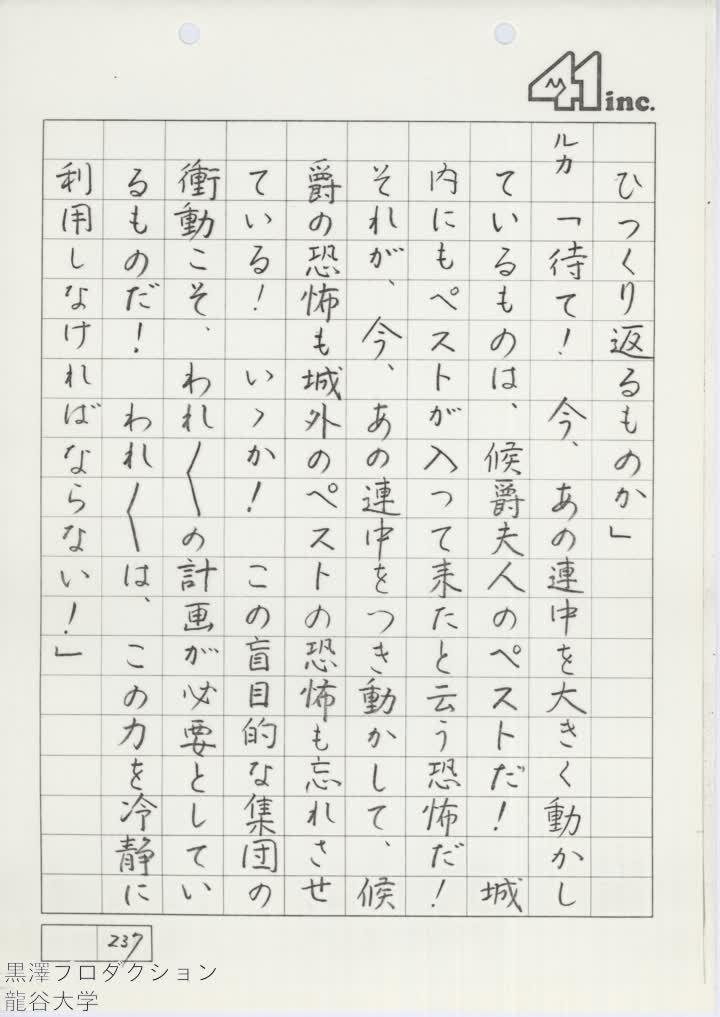 41 inc.
ひっくり返るものか」
ルカ「待て！　今、あの連中を大きく動かし
ているものは、候爵夫人のペストだ！　城
内にもペストが入って来たと云う恐怖だ！
それが、今、あの連中をつき動かして、候
爵の恐怖も城外のペストの恐怖も忘れさせ
ている！　いゝか！　この盲目的な集団の
衝動こそ、われ〱の計画が必要としてい
るものだ！　われ〱は、この力を冷静に
利用しなければならない！」
237
黒澤プロダクション
龍谷大学